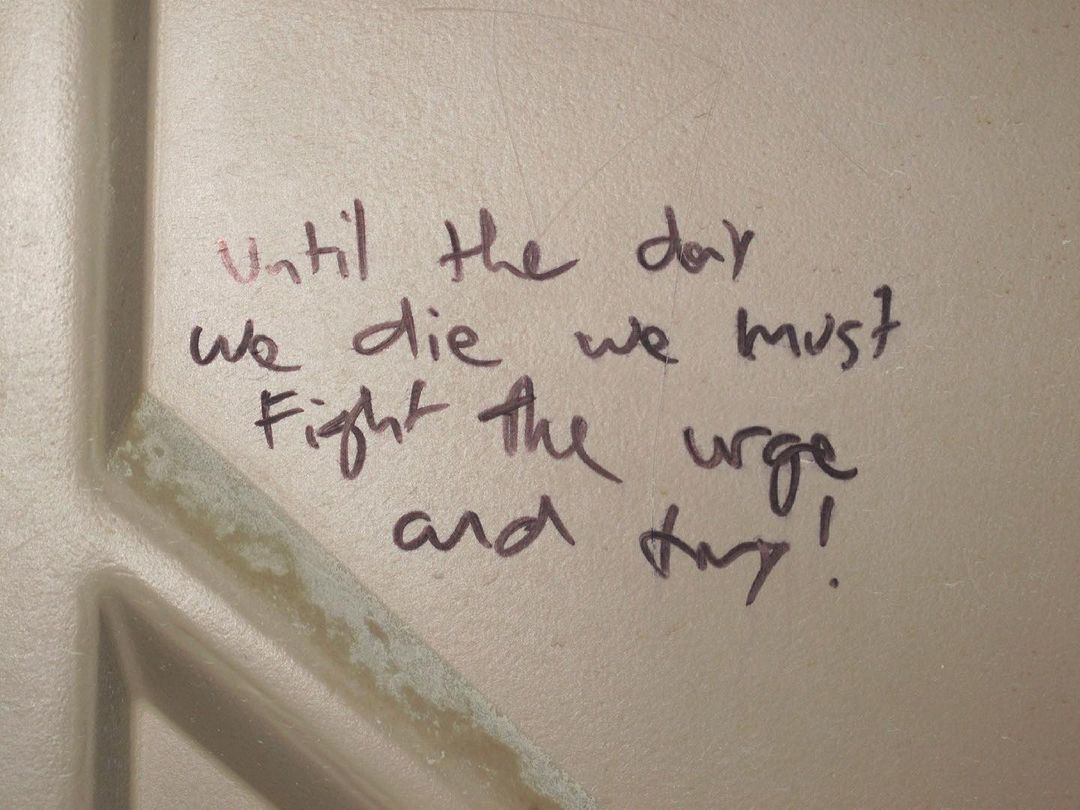 until the day
we die we must
Fight the urge
and try!